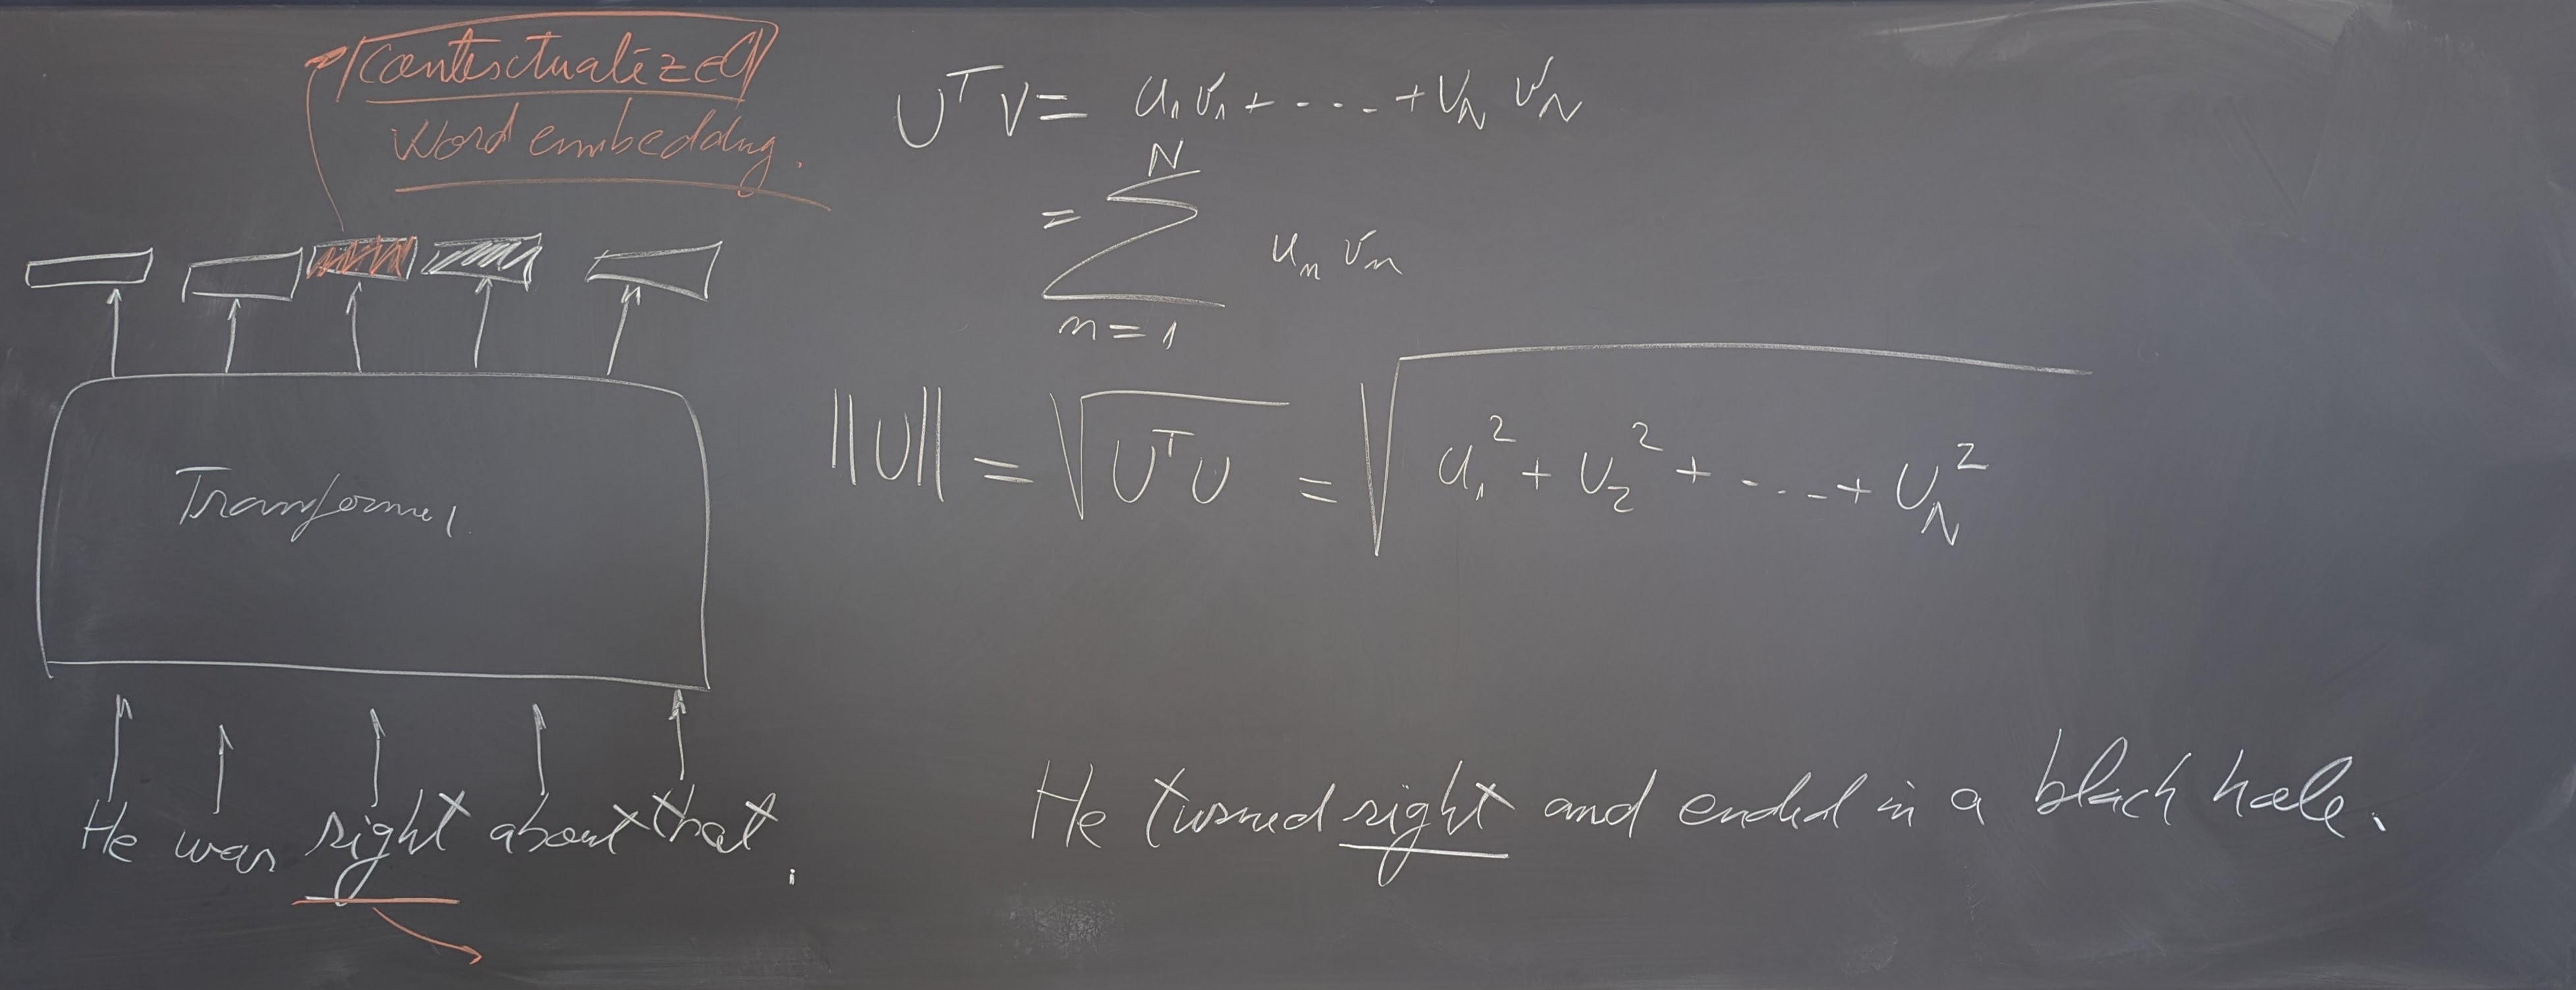 contextualized
Word embedding.
U^T V = u_1 v_1 + ---- + U_N v_N
= \sum_{n=1}^{N} u_n v_n
||U|| = \sqrt{U^T U} = \sqrt{u_1^2 + U_2^2 + ---- + U_N^2}
Transformer
He was right about that.
He turned right and ended in a black hole.